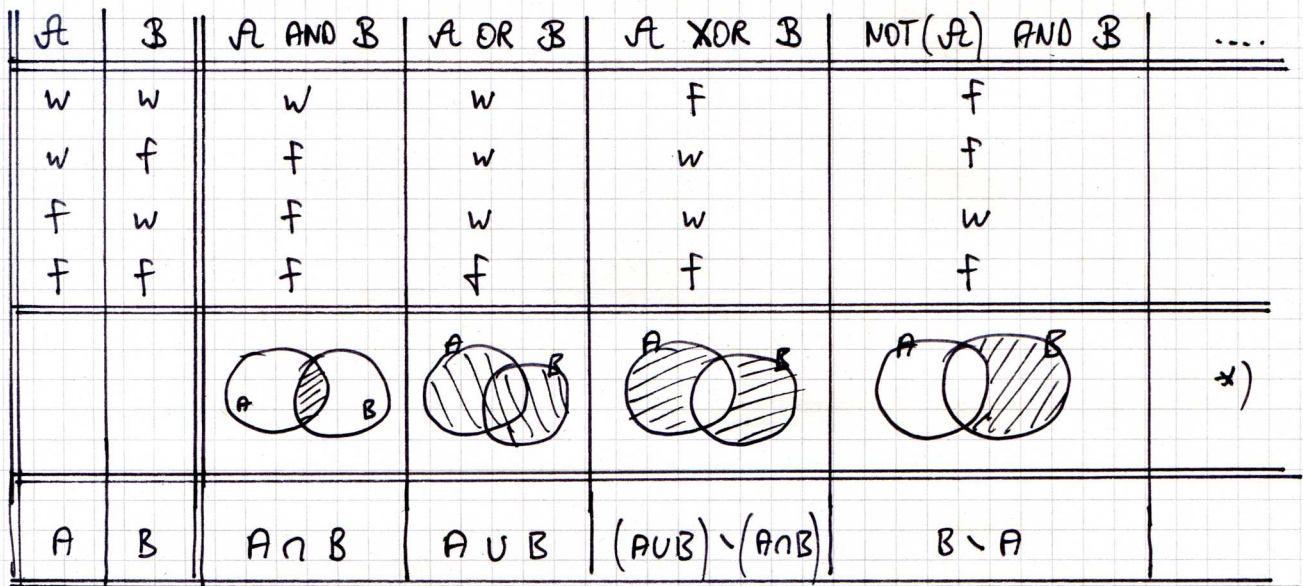 A B A AND B A OR B A XOR B NOT(A) AND B ....
w w w w f f
w f f w w f
f w f w w w
f f f f f f
A B A B A B A B *)
A B A ∩ B A ∪ B (A∪B) \ (A∩B) B \ A